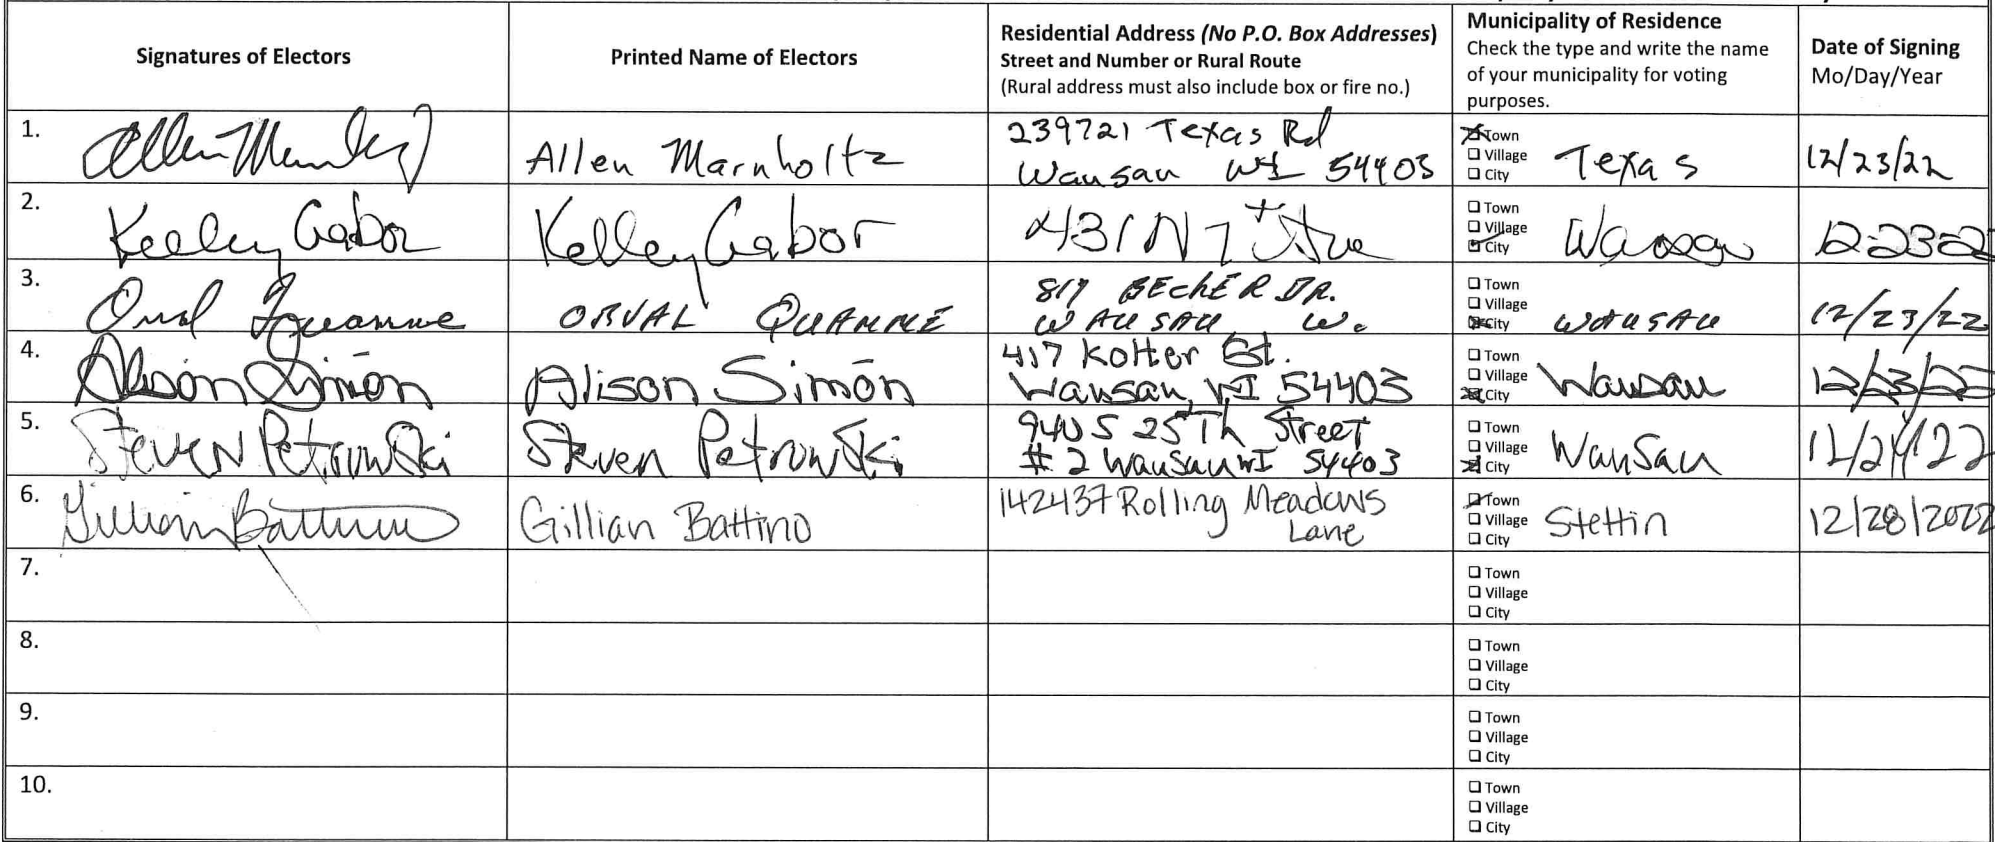 Signatures of Electors
Printed Name of Electors
Residential Address (No P.O. Box Addresses)
Street and Number or Rural Route
(Rural address must also include box or fire no.)
Municipality of Residence
Check the type and write the name
of your municipality for voting
purposes.
Date of Signing
Mo/Day/Year
1.
Allen Marnholtz
239721 Texas Rd
Wausau WI 54403
Town
Village
City
Texas
12/23/22
2.
Kelley Gabor
Kelley Gabor
431 N 7th Ave
Town
Village
City
Wausau
12-23-2
3.
Orval Quamme
ORVAL QUAMME
817 BECHER DR.
WAUSAU Wi
Town
Village
City
WAUSAU
12/23/22
4.
Alison Simōn
Alison Simōn
417 Kolter St.
Wausau, WI 54403
Town
Village
City
Wausau
12/23/22
5.
Steven Petrowski
Steven Petrowski
940 S 25Th Street
# 2 Wausau WI 54403
Town
Village
City
Wausau
12/24/22
6.
Gillian Battino
Gillian Battino
142437 Rolling Meadows
Lane
Town
Village
City
Stettin
12/28/2022
7.
Town
Village
City
8.
Town
Village
City
9.
Town
Village
City
10.
Town
Village
City